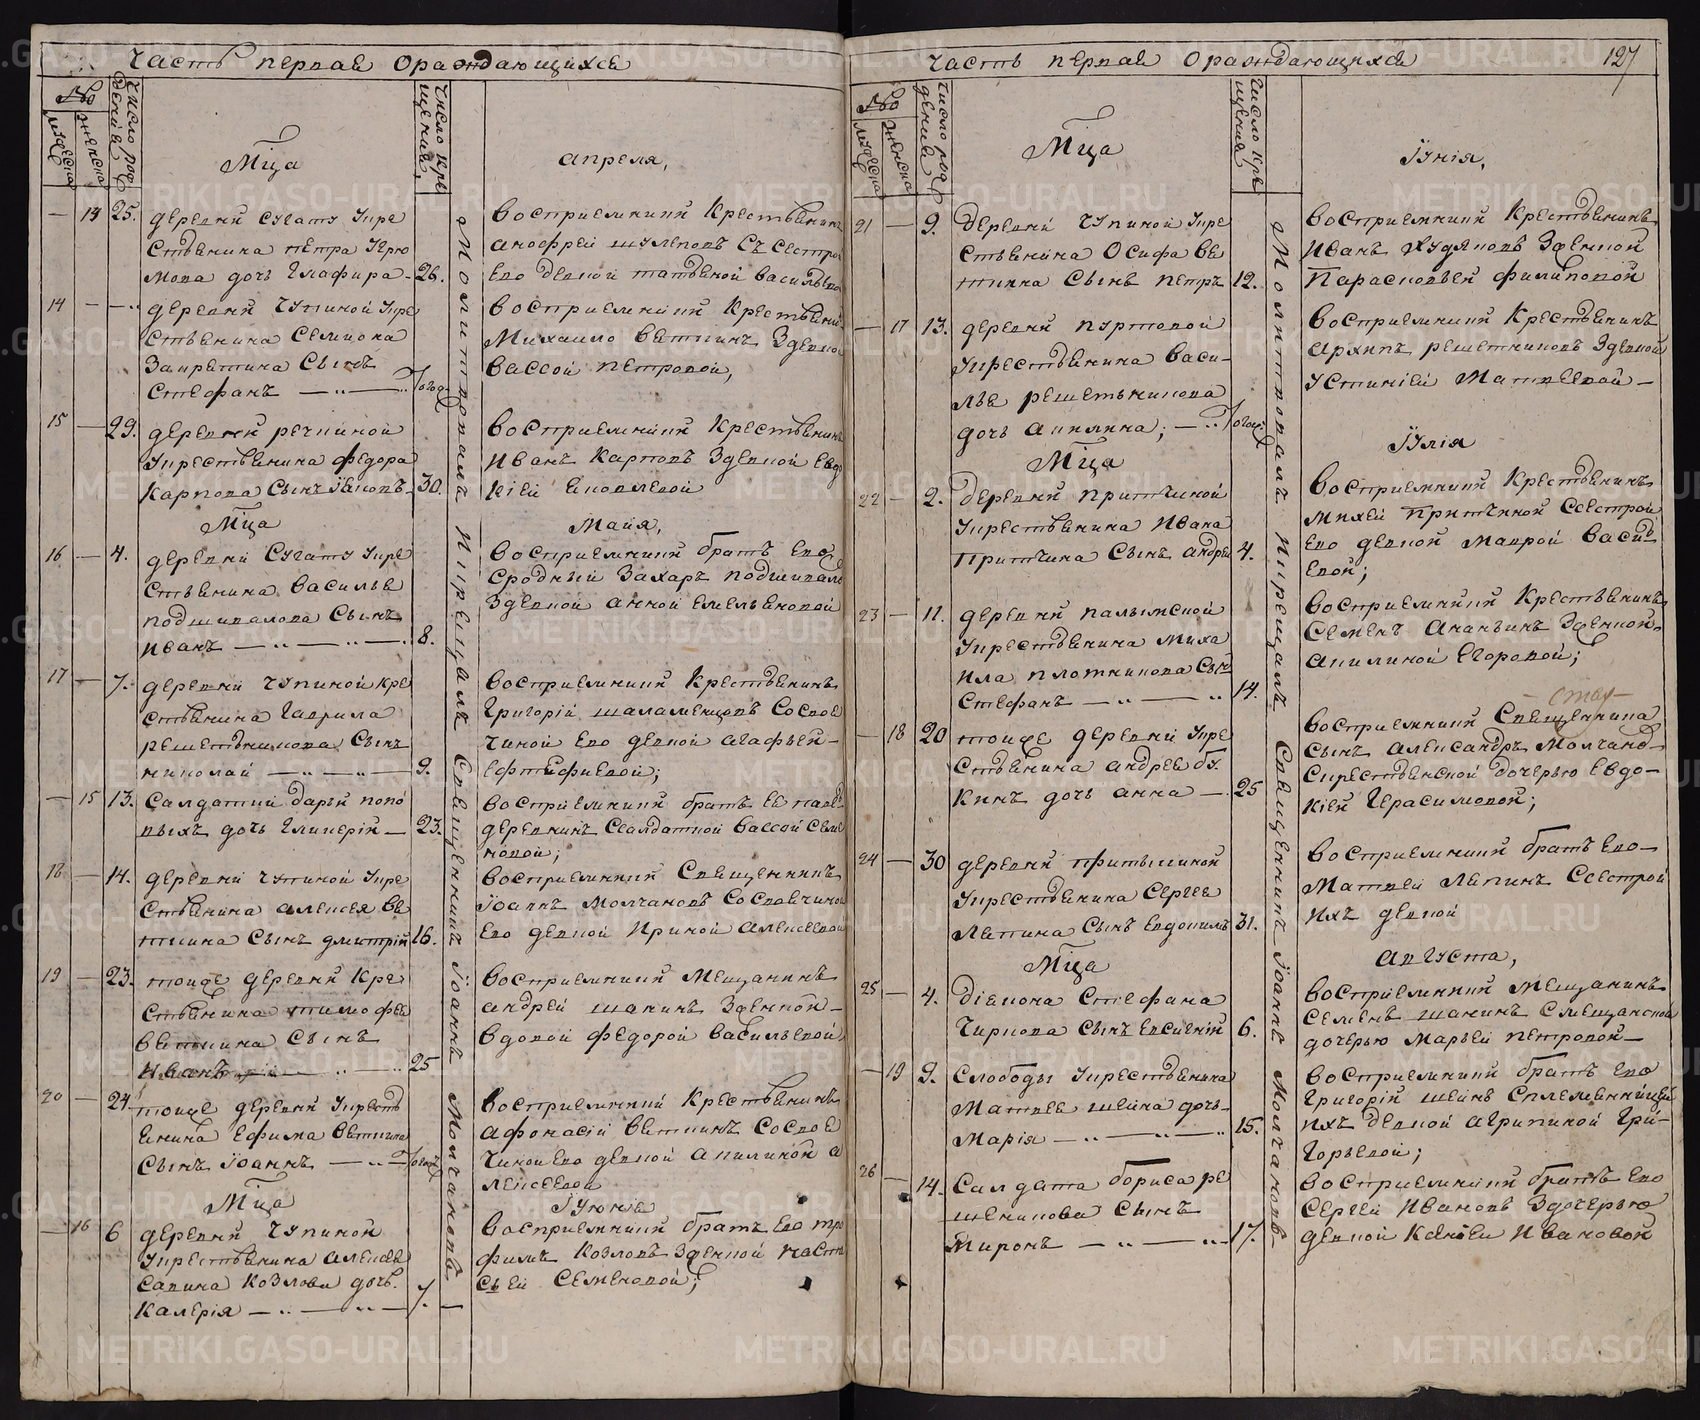 Часть первая о раждающихся
№
мужеска
женска
число рождения
Мца
число крещения
апреля,
— 13 25. деревни Сугату Кре
стьянина петра
мова дочь Глафира — 26.
Восприемники Крестьянинъ
анофрей шулеповъ Съ Сестрою
Его девкой татьяной васильево
Молитвовалъ и крещалъ Священникъ Іоаннъ Молчановъ
14 — — деревни Чупиной Кре
стьянина Семиона
Замятина Сынъ
Стефанъ — Того
Восприемники Крестьянин
Михаило Вяткинъ З девкою
Вассой петровой,
15 — 29. деревни речкиной
Крестьянина Федора
Карпова Сынъ Іяковъ — 30.
Восприемники Крестьянинъ
Иванъ Карповъ З девкой Евдо
кіей Яковлевой
Мца
Маія,
16 — 4. деревни Сугату Кре
стьянина Василья
подшивалова Сынъ
Иванъ — 8.
Восприемники братъ Его
Сродный Захаръ подшивалъ
З девкой анной Емельяновой
17 — 7. деревни Чупиной Кре
стьянина Гаврила
решетникова Сынъ
николай — 9.
Восприемники Крестьянинъ
Григорій шаламенцовъ Со своя
чиной Его девкой агафьей
Ефтифиевой;
— 15 13. Салдатки дарьи попо
выхъ дочь Гликерія — 23.
Восприемники братъ Ея
деревнинъ Ссалдаткой вассой Семе
новой;
18 — 14. деревни Чупиной Кре
стьянина алексея Вя
ткина Сынъ дмитрій 16.
Восприемники Священникъ
Іоаннъ Молчановъ Со Свячиной
Его девкой Ириной алексеевой
19 — 23. тояже деревни Кре
стьянина тимофея
вяткина Сынъ
Иванъ — 25
Восприемники Мещанинъ
андрей шанинъ З женкой
вдовой федорой васильевой
20 — 24. тояже деревни Крестья
янина Ефима Вяткина
Сынъ Іоаннъ — Того
Восприемники Крестьянинъ
афонасій вяткинъ Со своя
чиной Его девкой акилиной а
лексеевой
Мца
Іуюня
— 16 6 деревни Чупиной
Крестьянина алексея
Савина Козлова дочь
Калерія — 7.
Восприемники братъ Его тро
фимъ Козловъ З женкой наста
сьей Семеновой;
Часть первая о раждающихся
127
№
мужеска
женска
число рождения
Мца
число крещения
Іунія,
21 — 9. деревни Чупиной Кре
стьянина Осифа Вя
ткина Сынъ петръ 12.
Восприемники Крестьянинъ
Иванъ Худяковъ З женкой
Парасковьей филиповой
Молитвовалъ и крещалъ Священникъ Іоаннъ Молчановъ
— 17 13. деревни пуртовой
Крестьянина Васи
лья решетьникова
дочь акилина; — Того
Восприемники Крестьянинъ
архипъ решетниковъ З девкой
Устиніей Матвеевой —
Мца
Іулія
22 — 2. деревни притчиной
Крестьянина Ивана
Притчина Сынъ андрей 4.
Восприемники Крестьянинъ
Михей притчиной Ссестрой
Его девкой Маврой Васил
Евой;
23 — 11. деревни палымской
Крестьянина Миха
ила плотникова Сынъ
Стефанъ — 14.
Восприемники Крестьянинъ
Семенъ Ананьинъ З женкой
акилиной Егоровой;
— 18 20 тояже деревни Кре
стьянина андрея бу
кинъ дочь анна — 25
Восприемники Священника
Сынъ александръ Молчанов
Скрестьянской дочерью Евдо
кіей Герасимовой;
24 — 30 деревни притыкиной
Крестьянина Сергея
Лапина Сынъ Евдокимъ 31.
Восприемники братъ Его
Матвей Лапинъ Ссестрой
Ихъ девкой
Мца
августа,
25 — 4. діякона Стефана
Чиркова Сынъ Евсиеній 6.
Восприемники мещанинъ
Семенъ шанинъ Смещанской
дочерью Марьей петровой —
— 19 9. Слободы Крестьянина
Матвея шеина дочь
Марія — 15.
Восприемники братъ Его
Григорій шеинъ Сплемянницей
Ихъ девкой агрипиной Гри
горьевой;
26 — 14. Салдата бориса ре
шеникова Сынъ
Миронъ — 17.
Восприемники братъ Его
Сергей Ивановъ Здочерью
девкой Ксеніей Ивановой
METRIKI.GASO-URAL.RU